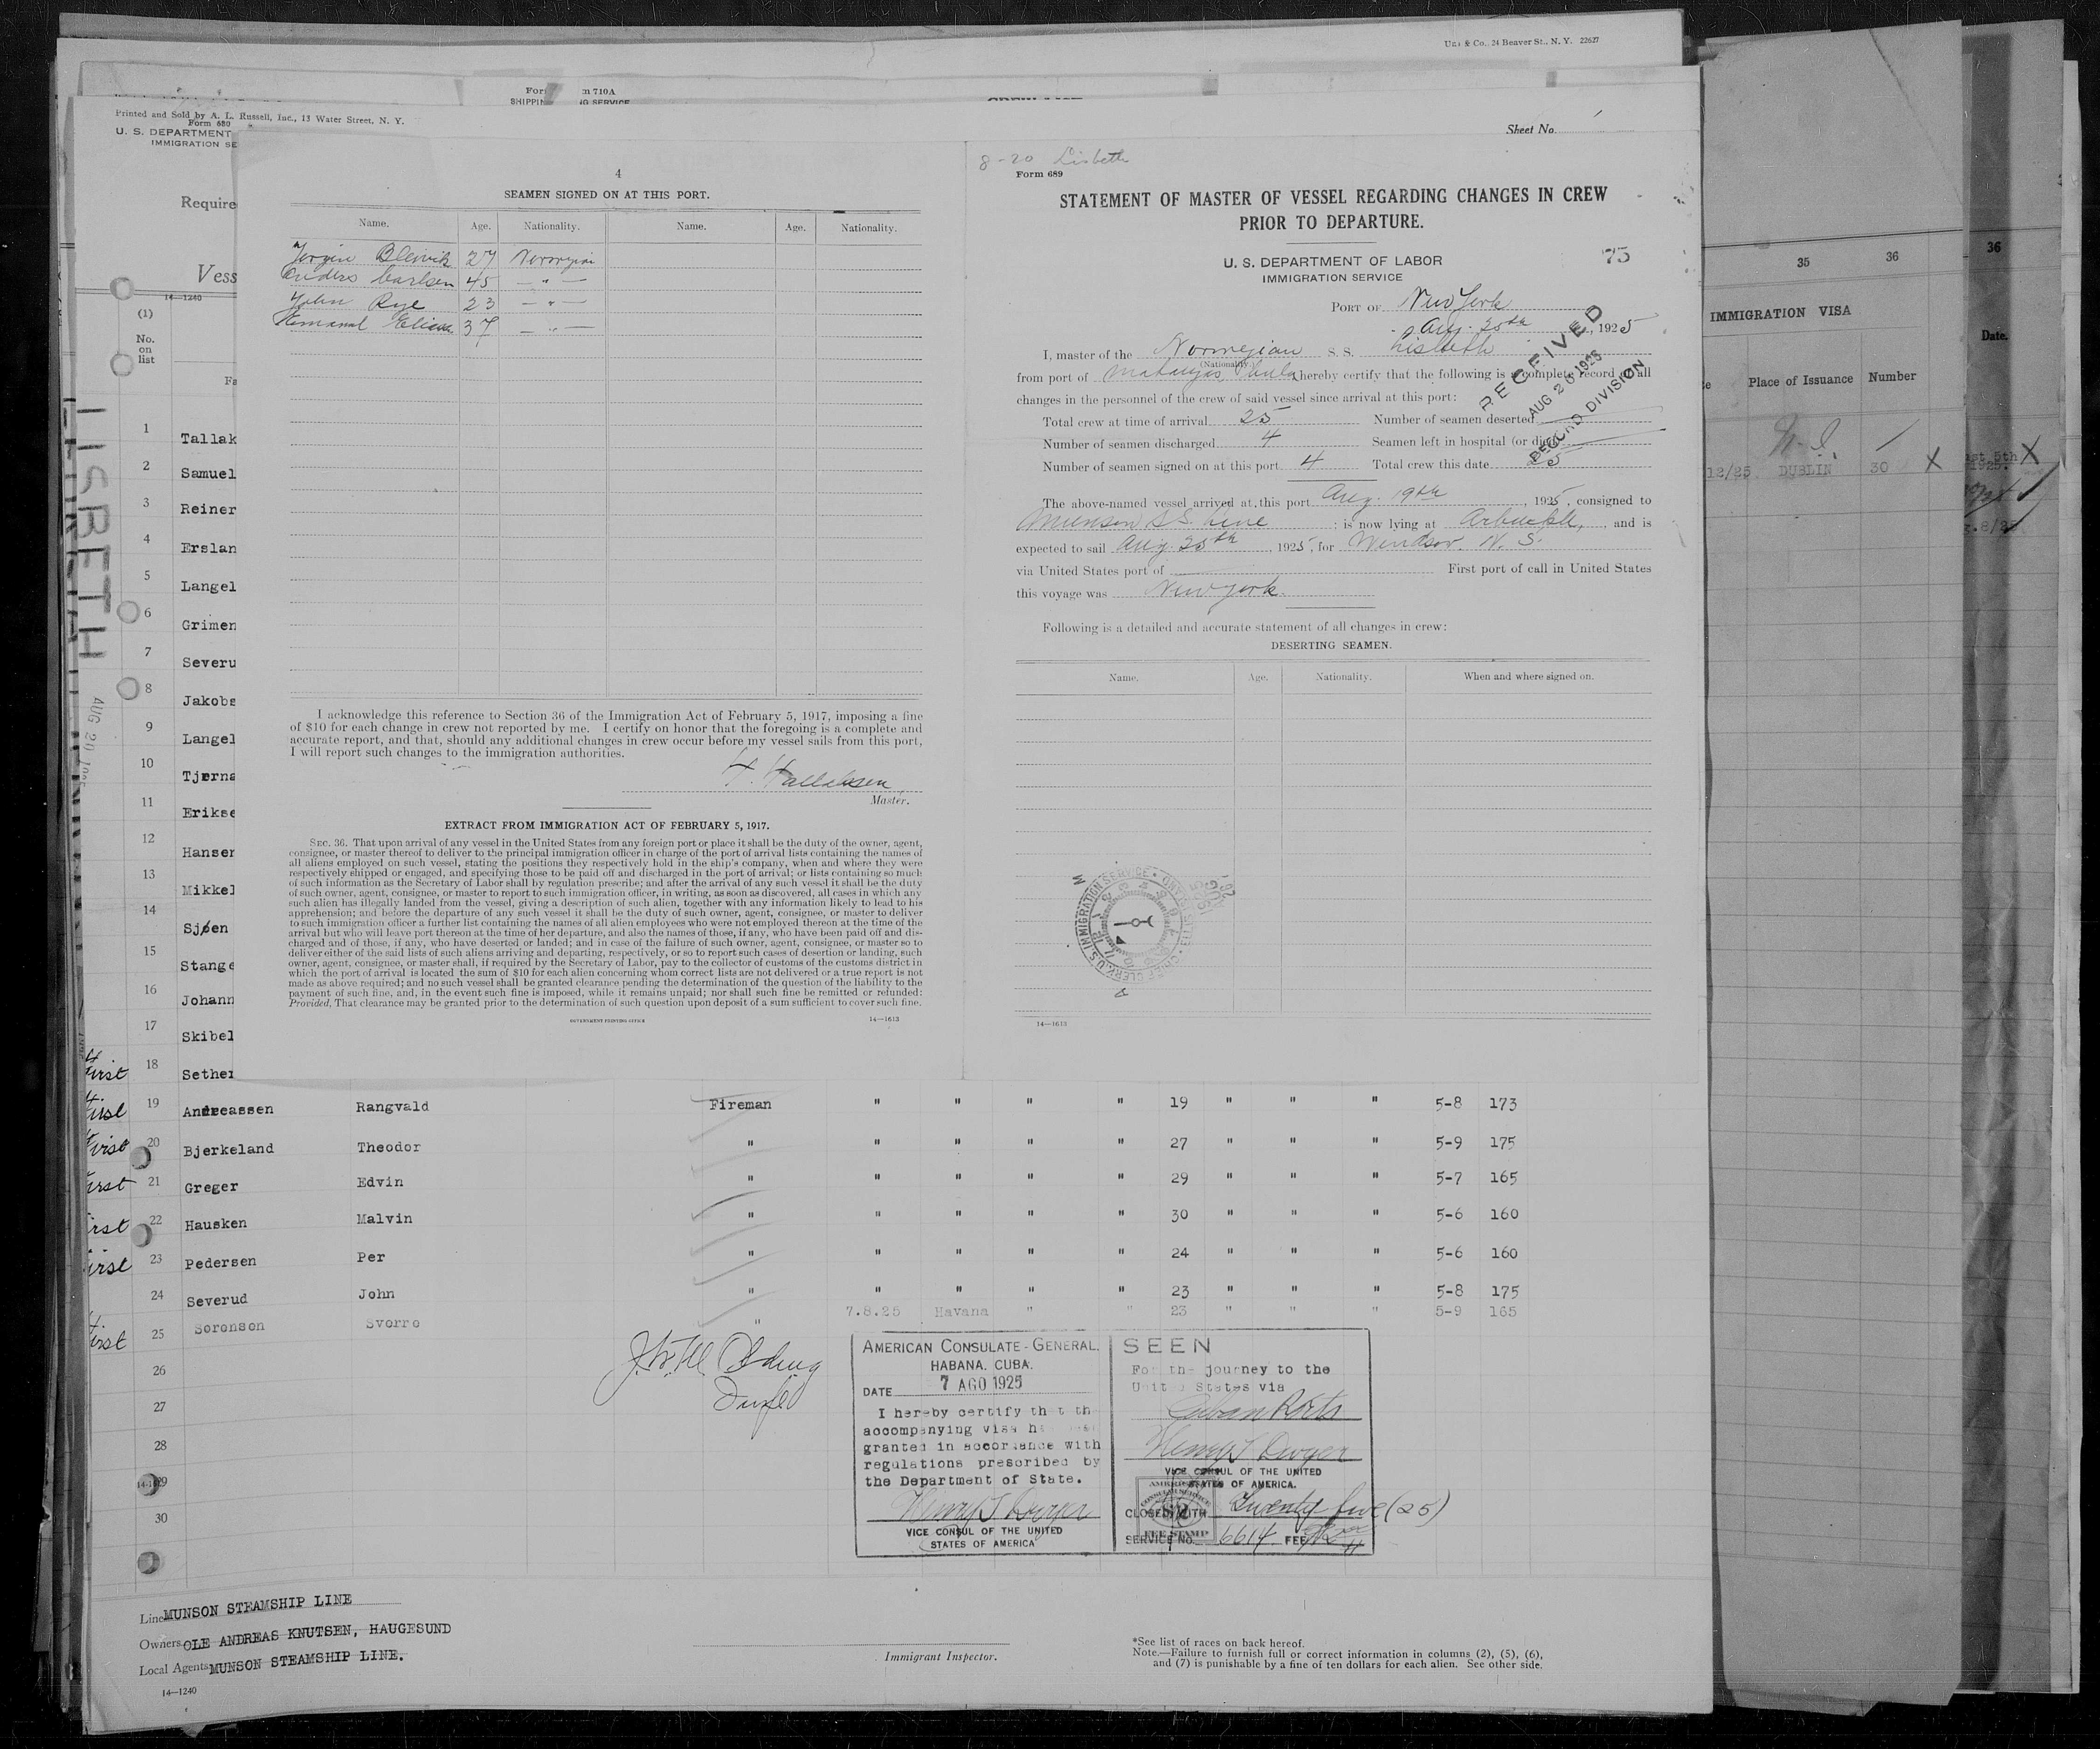 Co., 24 Beaver St., N. Y. 22627
m 710A
Printed and Sold by A. L. Russell, Inc., 13 Water Street, N. Y.
Form 680
U. S. DEPARTMENT
IMMIGRATION SE
Require
Vess
14—1240
(1)
No.
on
list
LISBETH
AUG 20
1 Tallak
2 Samuel
3 Reiner
4 Erslan
5 Langel
6 Grimen
7 Severu
8 Jakobs
9 Langel
10 Tjerna
11 Erikse
12 Hansen
13 Mikkel
14 Sjøen
15 Stange
16 Johann
17 Skibel
First 18 Sether
4
SEAMEN SIGNED ON AT THIS PORT.
Name. Age. Nationality. Name. Age. Nationality.
27 Norwegian
Anders Carlsen 45 — " —
John Rye 23 — " —
37 — " —
I acknowledge this reference to Section 36 of the Immigration Act of February 5, 1917, imposing a fine
of $10 for each change in crew not reported by me. I certify on honor that the foregoing is a complete and
accurate report, and that, should any additional changes in crew occur before my vessel sails from this port,
I will report such changes to the immigration authorities.
Master.
EXTRACT FROM IMMIGRATION ACT OF FEBRUARY 5, 1917.
SEC. 36. That upon arrival of any vessel in the United States from any foreign port or place it shall be the duty of the owner, agent,
consignee, or master thereof to deliver to the principal immigration officer in charge of the port of arrival lists containing the names of
all aliens employed on such vessel, stating the positions they respectively hold in the ship's company, when and where they were
respectively shipped or engaged, and specifying those to be paid off and discharged in the port of arrival; or lists containing so much
of such information as the Secretary of Labor shall by regulation prescribe; and after the arrival of any such vessel it shall be the duty
of such owner, agent, consignee, or master to report to such immigration officer, in writing, as soon as discovered, all cases in which any
such alien has illegally landed from the vessel, giving a description of such alien, together with any information likely to lead to his
apprehension; and before the departure of any such vessel it shall be the duty of such owner, agent, consignee, or master to deliver
to such immigration officer a further list containing the names of all alien employees who were not employed thereon at the time of the
arrival but who will leave port thereon at the time of her departure, and also the names of those, if any, who have been paid off and dis-
charged and of those, if any, who have deserted or landed; and in case of the failure of such owner, agent, consignee, or master so to
deliver either of the said lists of such aliens arriving and departing, respectively, or so to report such cases of desertion or landing, such
owner, agent, consignee, or master shall, if required by the Secretary of Labor, pay to the collector of customs of the customs district in
which the port of arrival is located the sum of $10 for each alien concerning whom correct lists are not delivered or a true report is not
made as above required; and no such vessel shall be granted clearance pending the determination of the question of the liability to the
payment of such fine, and, in the event such fine is imposed, while it remains unpaid; nor shall such fine be remitted or refunded:
Provided, That clearance may be granted prior to the determination of such question upon deposit of a sum sufficient to cover such fine.
GOVERNMENT PRINTING OFFICE 14—1613
Sheet No. 1
8-20 Lisbeth
Form 689
STATEMENT OF MASTER OF VESSEL REGARDING CHANGES IN CREW
PRIOR TO DEPARTURE.
75
U. S. DEPARTMENT OF LABOR
IMMIGRATION SERVICE
PORT OF New York
Aug. 20th, 1925
RECEIVED
AUG 20 1925
RECORD DIVISION
I, master of the Norwegian S. S. Lisbeth
(Nationality)
from port of Matanzas, Cuba, hereby certify that the following is a complete record of all
changes in the personnel of the crew of said vessel since arrival at this port:
Total crew at time of arrival 25 Number of seamen deserted
Number of seamen discharged 4 Seamen left in hospital (or died)
Number of seamen signed on at this port 4 Total crew this date 25
The above-named vessel arrived at this port Aug. 19th, 1925, consigned to
Munson S.S. Line; is now lying at Arbuckle, and is
expected to sail Aug. 20th, 1925, for Windsor. N. S.
via United States port of First port of call in United States
this voyage was New York.
Following is a detailed and accurate statement of all changes in crew:
DESERTING SEAMEN.
Name. Age. Nationality. When and where signed on.
14—1613
35 36
IMMIGRATION VISA
Place of Issuance Number
12/25 DUBLIN 30 X
36
Date.
First 19 Andreassen Rangvald Fireman " " " " 19 " " " 5-8 173
First 20 Bjerkeland Theodor " " " " " 27 " " " 5-9 175
First 21 Greger Edvin " " " " " 29 " " " 5-7 165
First 22 Hausken Malvin " " " " " 30 " " " 5-6 160
First 23 Pedersen Per " " " " " 24 " " " 5-6 160
24 Severud John " " " " " 23 " " " 5-8 175
First 25 Sorensen Sverre " 7.8.25 Havana " " 23 " " " 5-9 165
26
27
28
29
30
AMERICAN CONSULATE-GENERAL.
HABANA. CUBA.
DATE 7 AGO 1925
I hereby certify that the
accompanying visa has been
granted in accordance with
regulations prescribed by
the Department of State.
Henry T. Dwyer
VICE CONSUL OF THE UNITED
STATES OF AMERICA
SEEN
For the journey to the
United States via
Cuban Ports
Henry T. Dwyer
VICE CONSUL OF THE UNITED
STATES OF AMERICA.
CLOSED WITH Twenty five (25)
SERVICE NO. 6614 FEE
Line MUNSON STEAMSHIP LINE
Owners OLE ANDREAS KNUTSEN, HAUGESUND
Local Agents MUNSON STEAMSHIP LINE.
14—1240
Immigrant Inspector.
*See list of races on back hereof.
Note.—Failure to furnish full or correct information in columns (2), (5), (6),
and (7) is punishable by a fine of ten dollars for each alien. See other side.